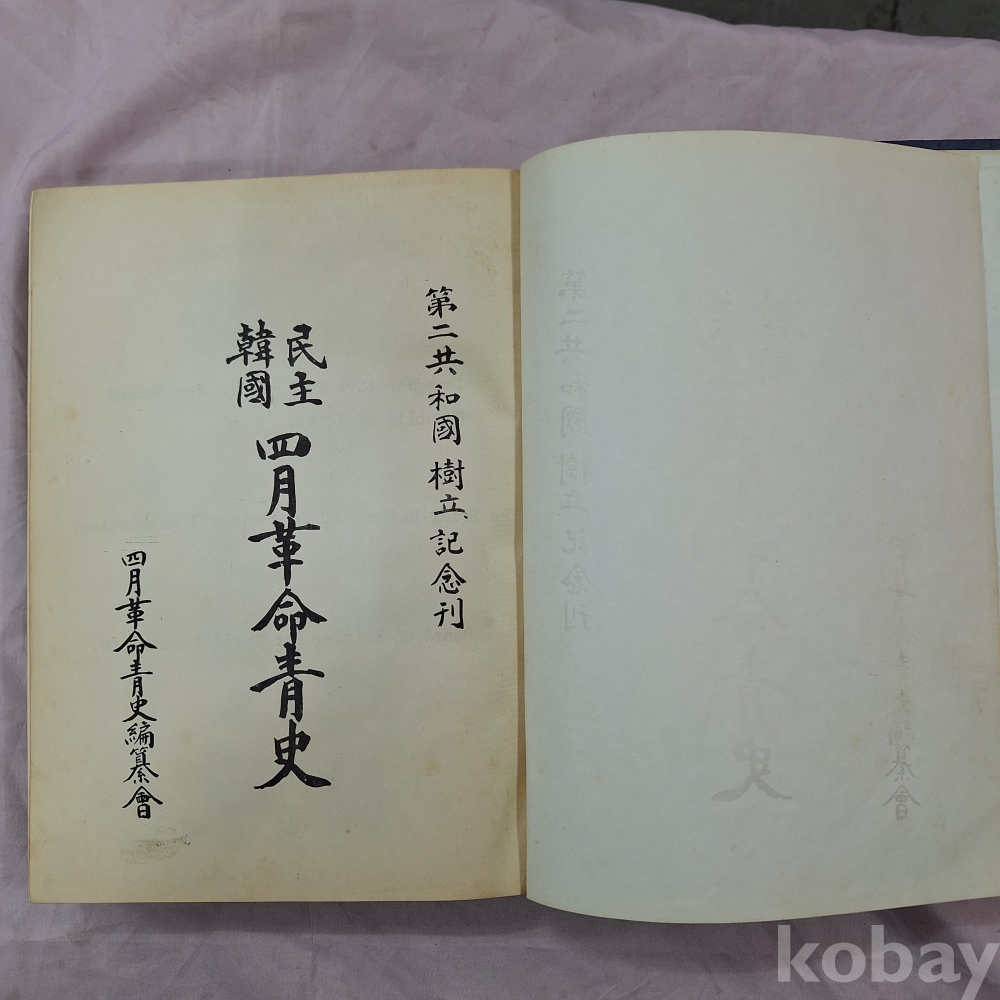 第二共和國樹立記念刊
民主
韓國
四月革命靑史
四月革命靑史編纂會
kobay